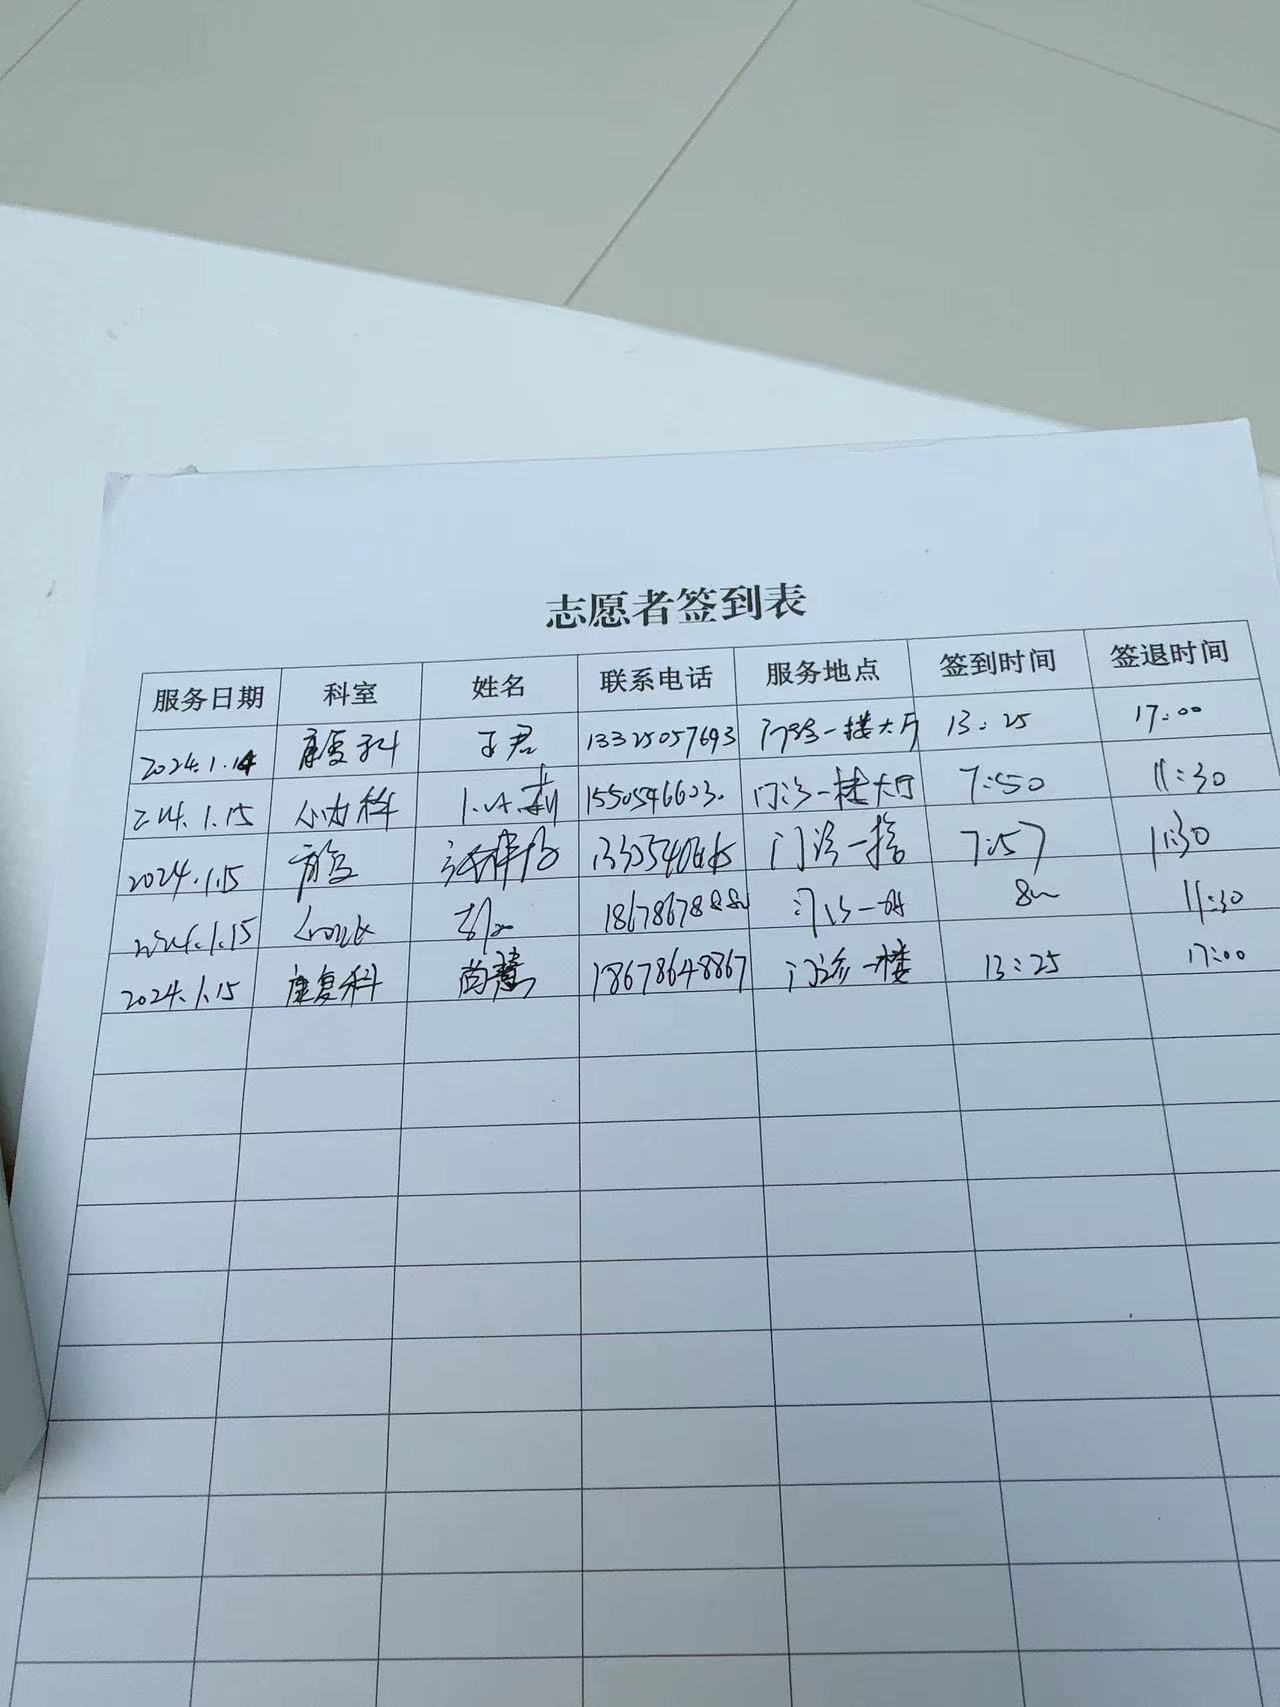 志愿者签到表
服务日期 科室 姓名 联系电话 服务地点 签到时间 签退时间
2024.1.14 康复科 王君 13325057693 门诊一楼大厅 13:25 17:00
2024.1.15 15505466 门诊一楼大厅 7:50 11:30
2024.1.15 门诊一楼 7:57 11:30
2024.1.15 门诊一楼 11:30
2024.1.15 康复科 尚慧 18678648867 门诊一楼 13:25 17:00